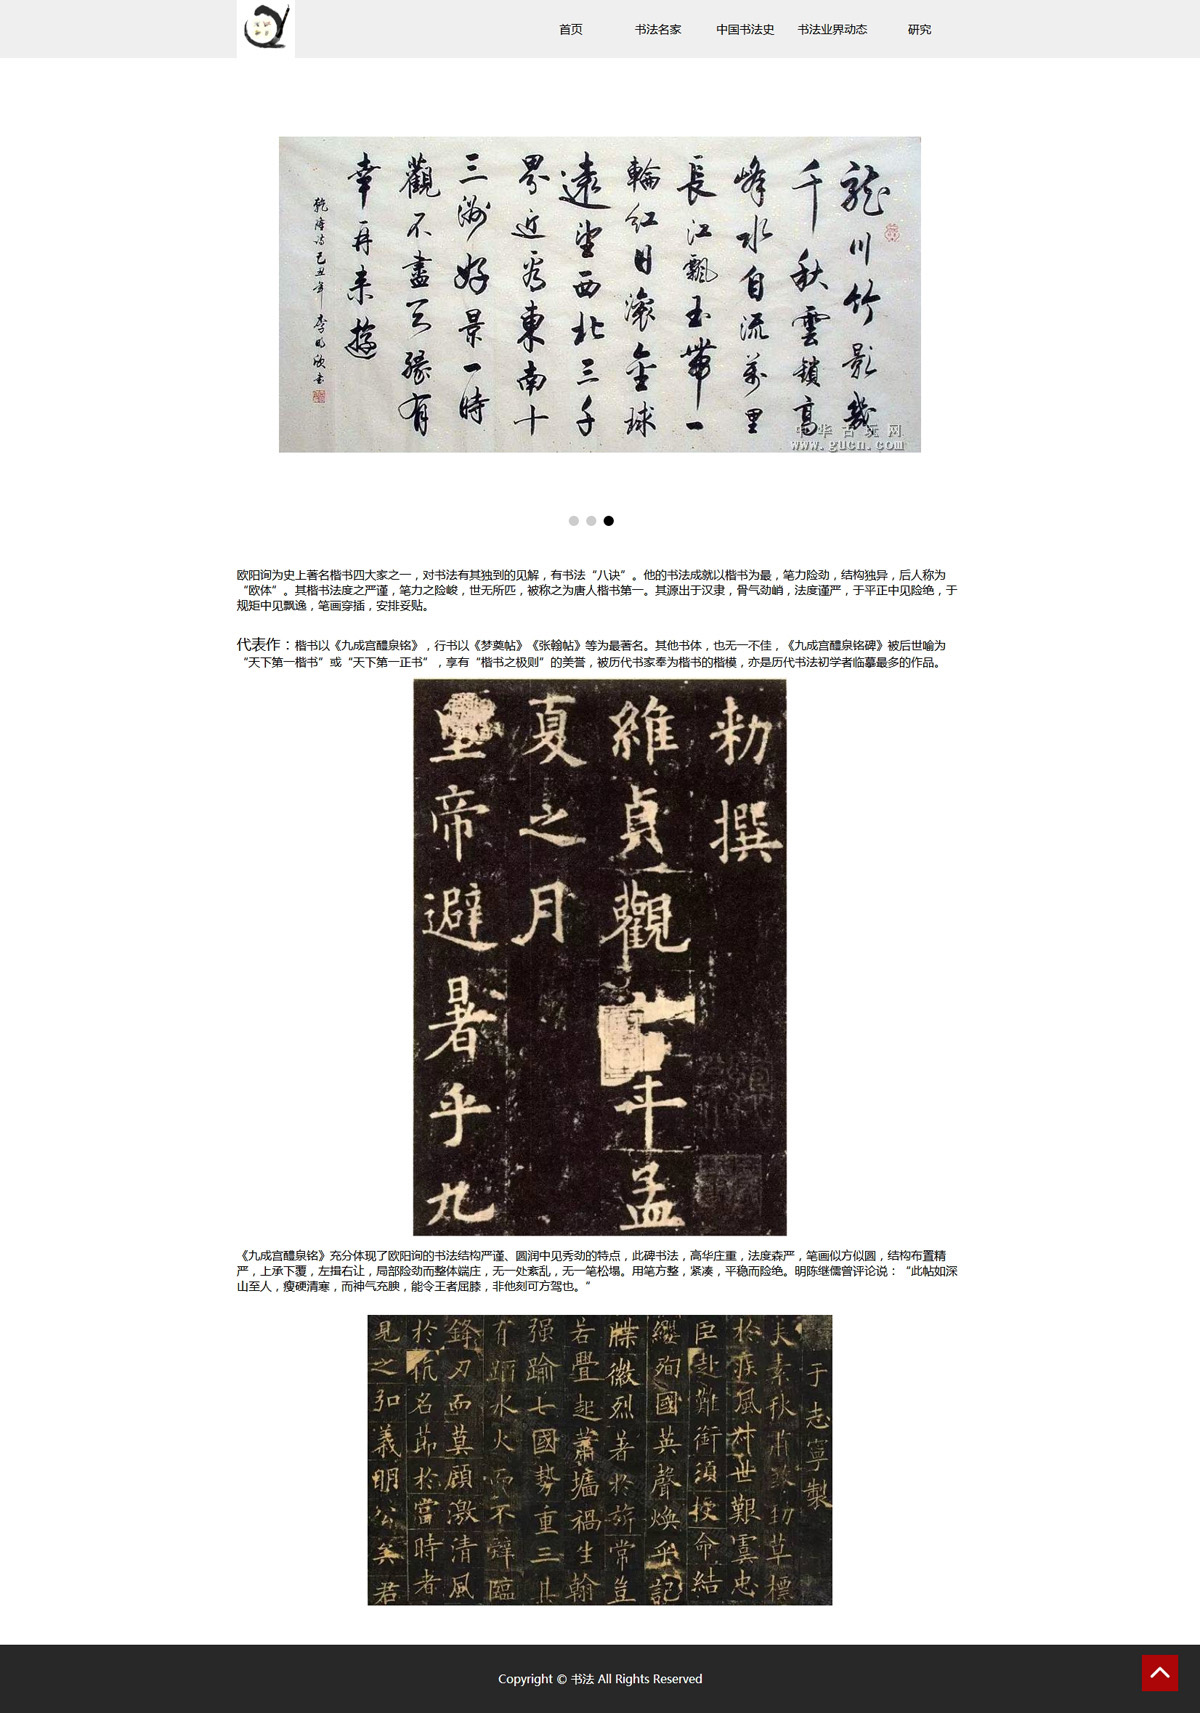 首页 书法名家 中国书法史 书法业界动态 研究
龍川竹影幾
千秋雲鎖高
峰水自流萬里
長江飄玉帶一
輪紅日滚金球
遠望西北三千
界近看東南十
三洲好景一時
觀不盡天緣有
幸再来遊
乾隆詩己丑年 李
中华古玩网
www.gucn.com
欧阳询为史上著名楷书四大家之一，对书法有其独到的见解，有书法“八诀”。他的书法成就以楷书为最，笔力险劲，结构独异，后人称为
“欧体”。其楷书法度之严谨，笔力之险峻，世无所匹，被称之为唐人楷书第一。其源出于汉隶，骨气劲峭，法度谨严，于平正中见险绝，于
规矩中见飘逸，笔画穿插，安排妥贴。
代表作：楷书以《九成宫醴泉铭》，行书以《梦奠帖》《张翰帖》等为最著名。其他书体，也无一不佳，《九成宫醴泉铭碑》被后世喻为
“天下第一楷书”或“天下第一正书”，享有“楷书之极则”的美誉，被历代书家奉为楷书的楷模，亦是历代书法初学者临摹最多的作品。
勑撰
維貞觀 年孟
夏之月
皇帝避暑乎九
《九成宫醴泉铭》充分体现了欧阳询的书法结构严谨、圆润中见秀劲的特点，此碑书法，高华庄重，法度森严，笔画似方似圆，结构布置精
严，上承下覆，左揖右让，局部险劲而整体端庄，无一处紊乱，无一笔松塌。用笔方整，紧凑，平稳而险绝。明陈继儒曾评论说：“此帖如深
山至人，瘦硬清寒，而神气充腴，能令王者屈膝，非他刻可方驾也。”
于志寧製
夫素秋肅煞勁草標
於疾風叔世艱虞忠
臣赴難銜須授命結
纓殉國英聲焕乎記
牒徽烈著於旂常豈
若疊起蕭墻禍生翰
强踰七國勢重三
有蹈水火而不辞臨
鋒刃而莫顧激清風
於 名節於當時者
見之弘義明公矣君
Copyright © 书法 All Rights Reserved